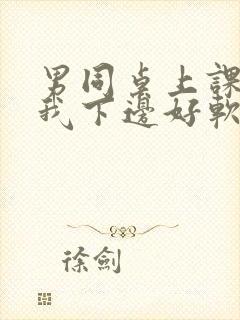 男同桌上課
我下邊好軟
徐劍